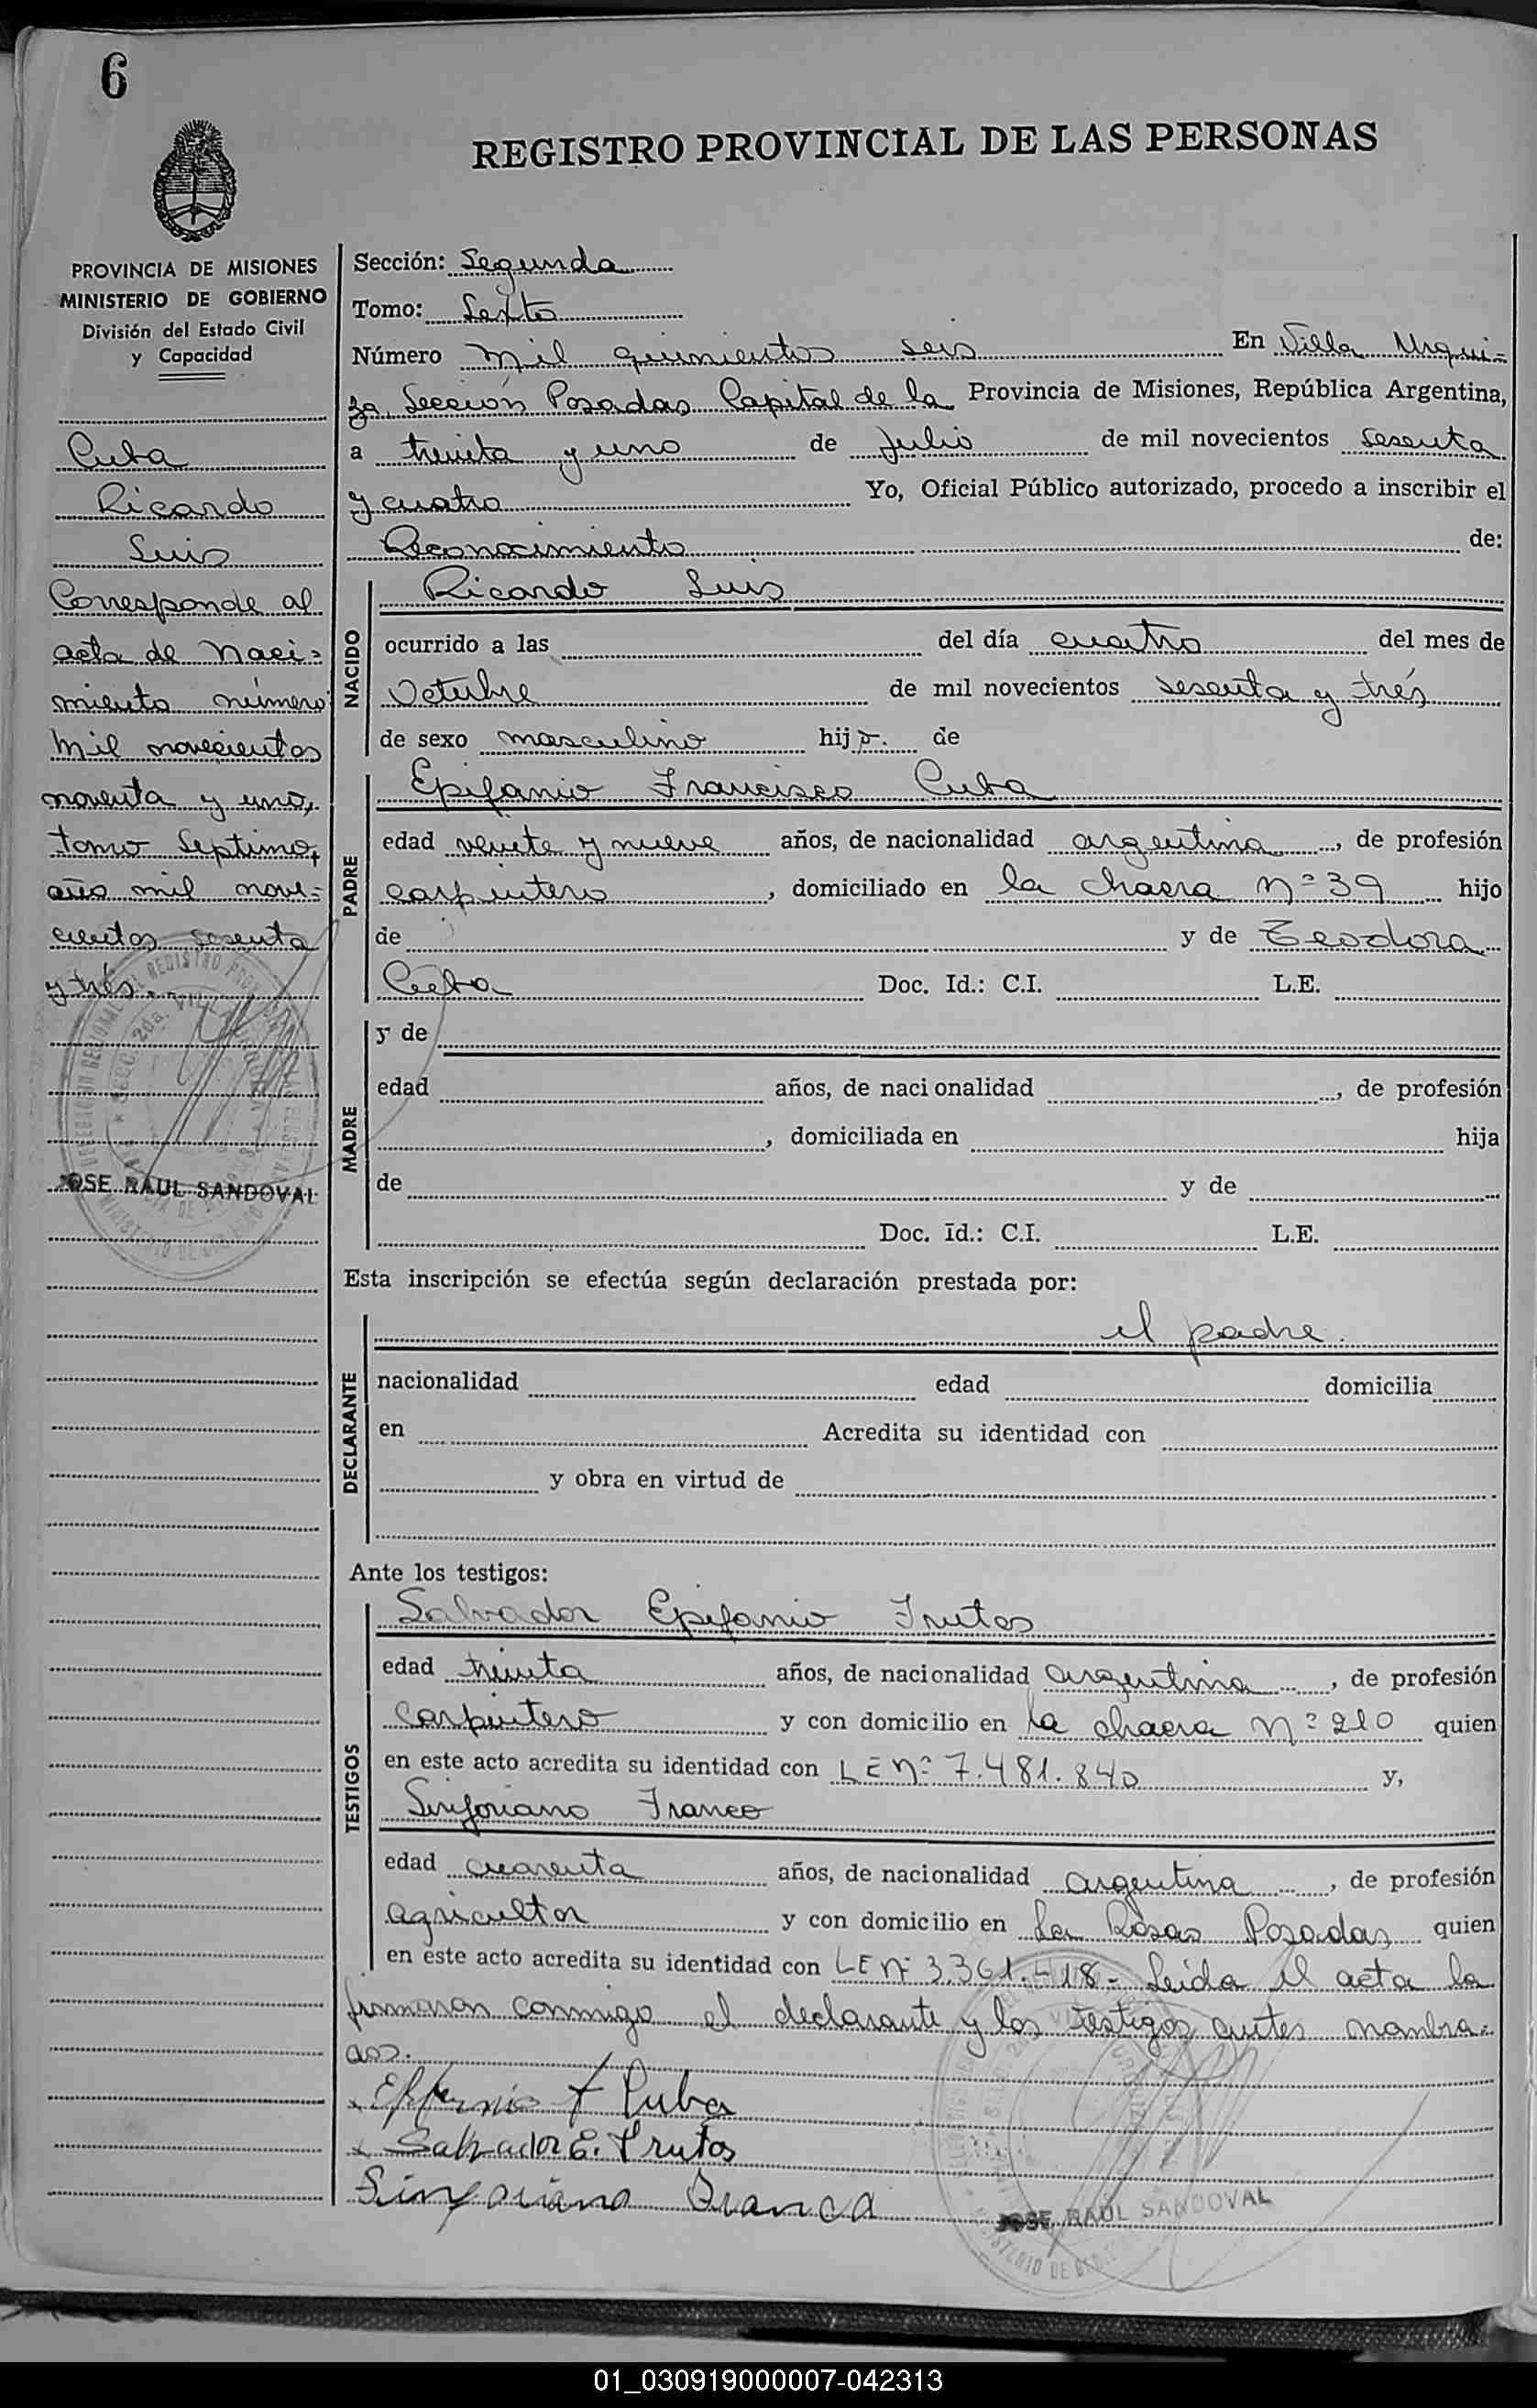 6
REGISTRO PROVINCIAL DE LAS PERSONAS
PROVINCIA DE MISIONES
MINISTERIO DE GOBIERNO
División del Estado Civil
y Capacidad
Cuba
Ricardo
Luis
Corresponde al
acta de Naci=
miento número
mil novecientos
noventa y uno,
tomo Septimo,
año mil nove=
cientos sesenta
y trés.
JOSE RAUL SANDOVAL
Sección: Segunda
Tomo: Sexto
Número mil quinientos seis En Villa Urqui=
za, Sección Posadas Capital de la Provincia de Misiones, República Argentina,
a treinta y uno de Julio de mil novecientos sesenta
y cuatro Yo, Oficial Público autorizado, procedo a inscribir el
Reconocimiento de:
NACIDO
Ricardo Luis
ocurrido a las del día cuatro del mes de
Octubre de mil novecientos sesenta y trés
de sexo masculino hijo. de
PADRE
Epifanio Francisco Cuba
edad veinte y nueve años, de nacionalidad argentina, de profesión
carpintero, domiciliado en la chacra nº 39 hijo
de y de Teodora
Cuba Doc. Id.: C.I. L.E.
MADRE
y de
edad años, de nacionalidad , de profesión
, domiciliada en hija
de y de
Doc. Id.: C.I. L.E.
Esta inscripción se efectúa según declaración prestada por:
DECLARANTE
el padre.
nacionalidad edad domicilia
en Acredita su identidad con
y obra en virtud de
Ante los testigos:
TESTIGOS
Salvador Epifanio Frutos
edad treinta años, de nacionalidad argentina, de profesión
carpintero y con domicilio en la chacra nº 210 quien
en este acto acredita su identidad con LE nº 7.481.840 y,
Sinforiano Franco
edad cuarenta años, de nacionalidad argentina, de profesión
agricultor y con domicilio en La Rosas Posadas quien
en este acto acredita su identidad con LE nº 3.361.418- Leida el acta la
firmaron conmigo el declarante y los testigos antes nombra=
dos.
Epifanio F Cuba
Salvador E. Frutos
Sinforiano Franco
JOSE RAUL SANDOVAL
01_030919000007-042313